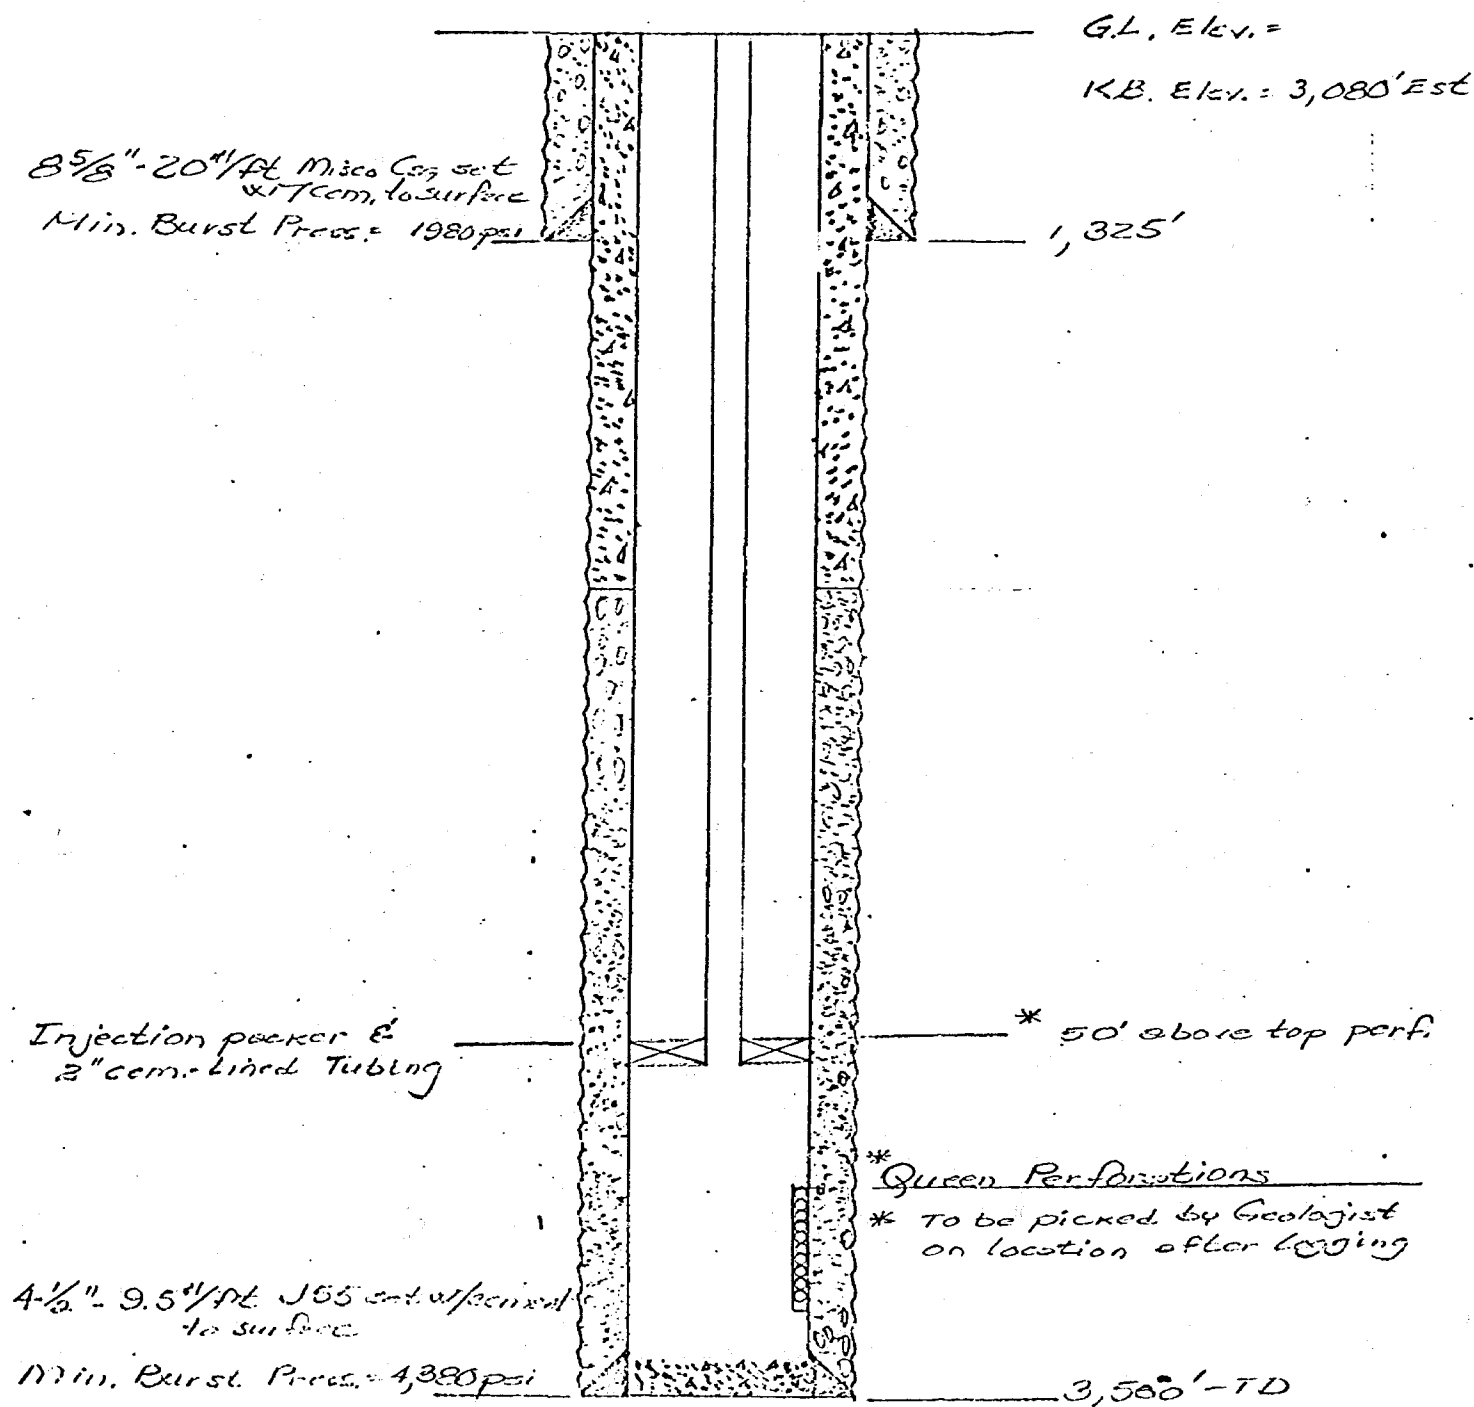 G.L. Elev. =
K.B. Elev. = 3,080' Est
8 5/8" - 20#/ft Misco Csg set
w/ cem. to surface
Min. Burst Press. = 1980 psi
1,325'
Injection packer &
2" cem.-Lined Tubing
* 50' above top perf.
*Queen Perforations
* To be picked by Geologist
on location after logging
4-1/2" - 9.5#/ft J55 set w/cement
to surface
Min. Burst. Press. = 4,380 psi
3,500' - TD